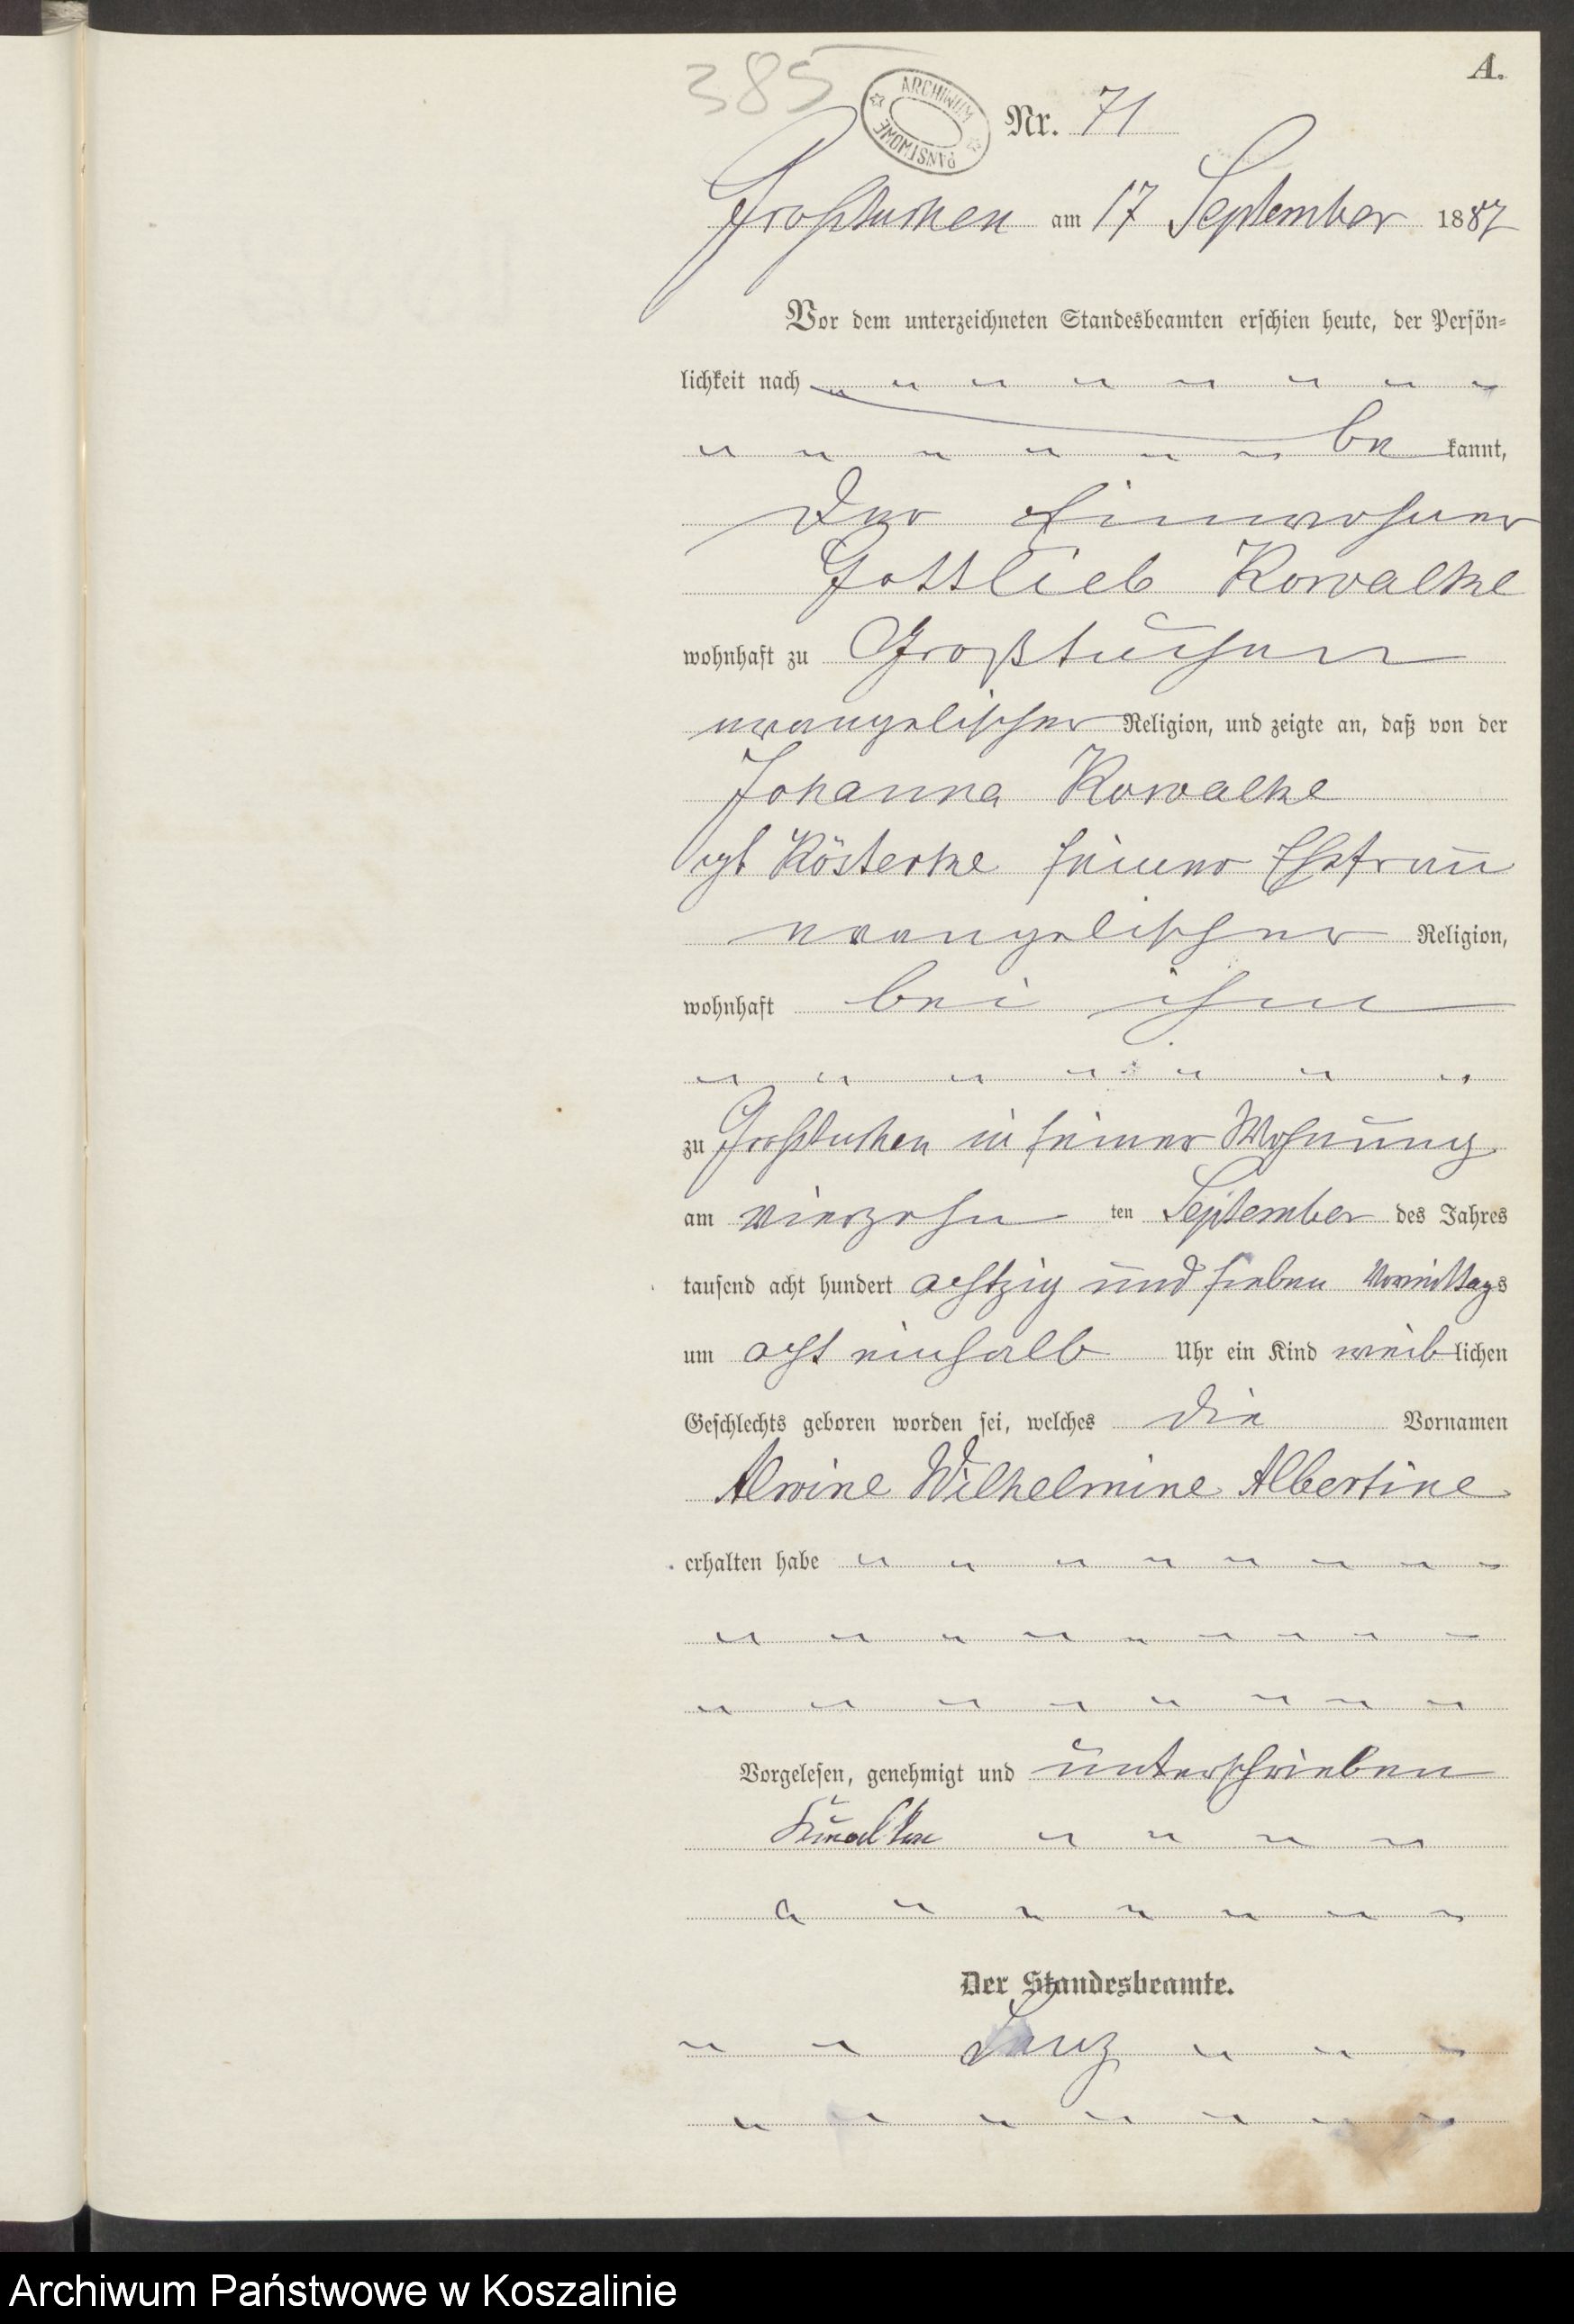 A.
385
ARCHIWUM PAŃSTWOWE
Nr. 71
Großtuchen am 17 September 1887
Vor dem unterzeichneten Standesbeamten erschien heute, der Persön-
lichkeit nach
be kannt,
der Einwohner
Gottlieb Kowalke
wohnhaft zu Großtuchen
evangelischer Religion, und zeigte an, daß von der
Johanna Kowalke
geb Kösterke seiner Ehefrau
evangelischer Religion,
wohnhaft bei ihm
zu Großtuchen in seiner Wohnung
am vierzehn ten September des Jahres
tausend acht hundert achtzig und sieben Vormittags
um acht einhalb Uhr ein Kind weib lichen
Geschlechts geboren worden sei, welches die Vornamen
Alwine Wilhelmine Albertine
erhalten habe
Vorgelesen, genehmigt und unterschrieben
Der Standesbeamte.
Archiwum Państwowe w Koszalinie